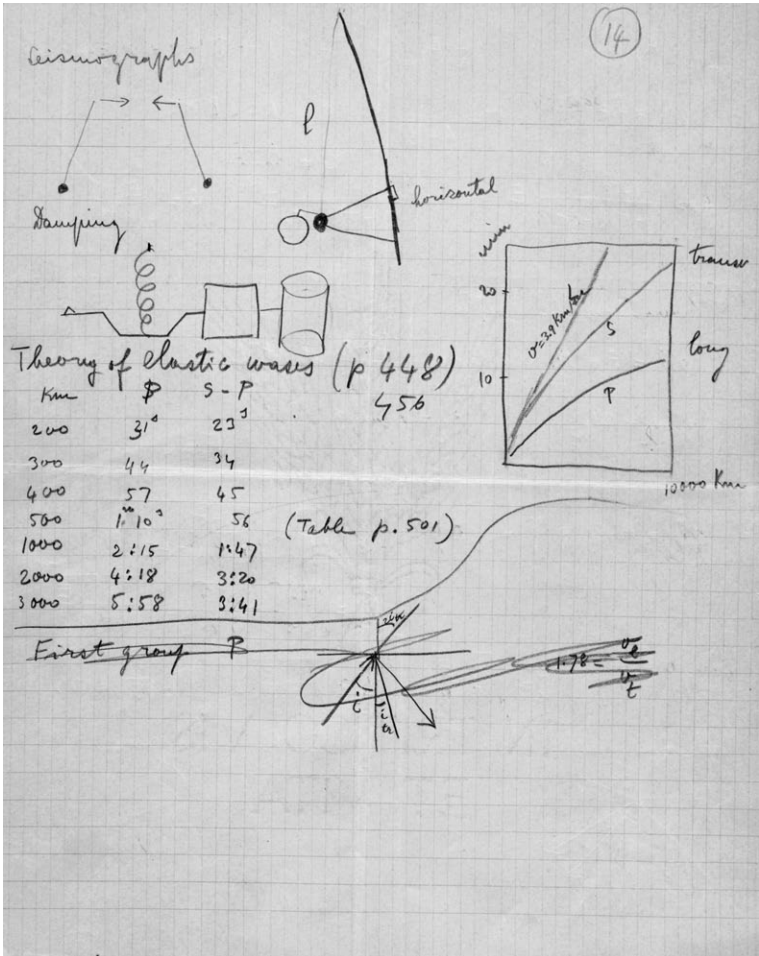 14
Seismographs
l
horizontal
Damping
min
20
10
v=3.9 Km/sec
S
P
transv
long
10000 Km
Theory of elastic waves (p 448)
456
Km P S-P
200 31ˢ 23ˢ
300 44 34
400 57 45
500 1ᵐ10ˢ 56
1000 2:15 1:47
2000 4:18 3:20
3000 5:58 3:41
(Table p. 501)
First group P
i
1.78 = v_l / v_t